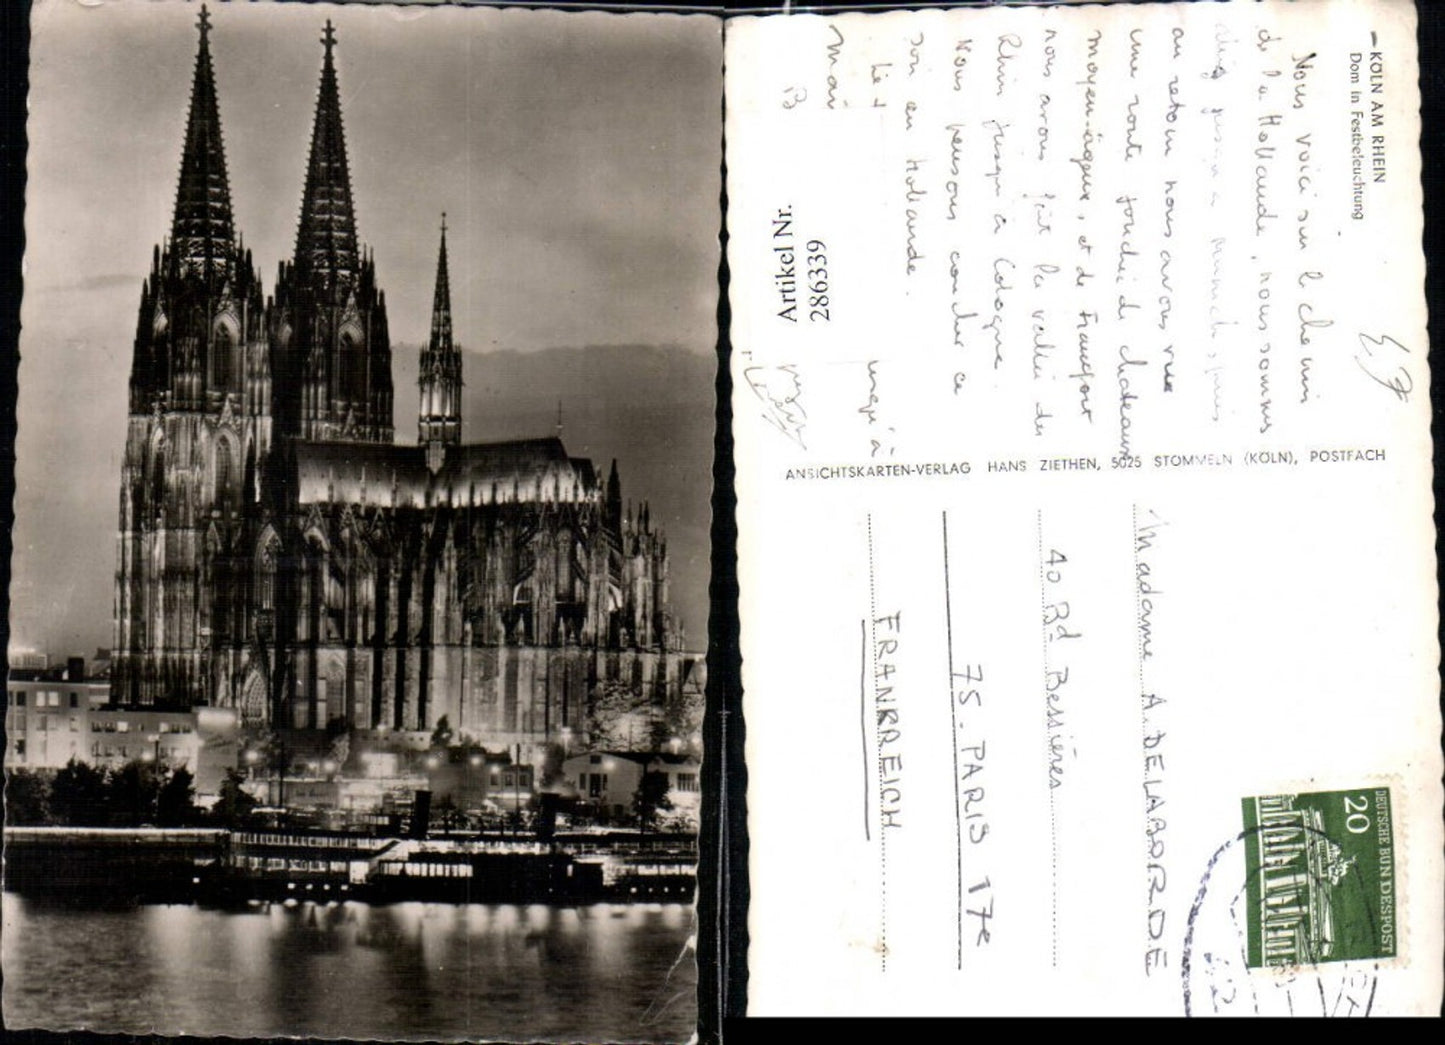 KÖLN AM RHEIN
Dom in Festbeleuchtung
Nous voici sur le chemin
de la Hollande, nous sommes
allés jusqu'à Munich, puis
au retour nous avons vu
une route bordée de chateaux
moyen-âgeux, et de Francfort
nous avons fait la vallée du
Rhin jusqu'à Cologne.
Nous pensons coucher ce
soir en Hollande.
ANSICHTSKARTEN-VERLAG HANS ZIETHEN, 5025 STOMMELN (KÖLN), POSTFACH
Artikel Nr.
286339
DEUTSCHE BUNDESPOST
20
Madame A. DELABORDE
40 Bd Bessières
75. PARIS 17e
FRANKREICH